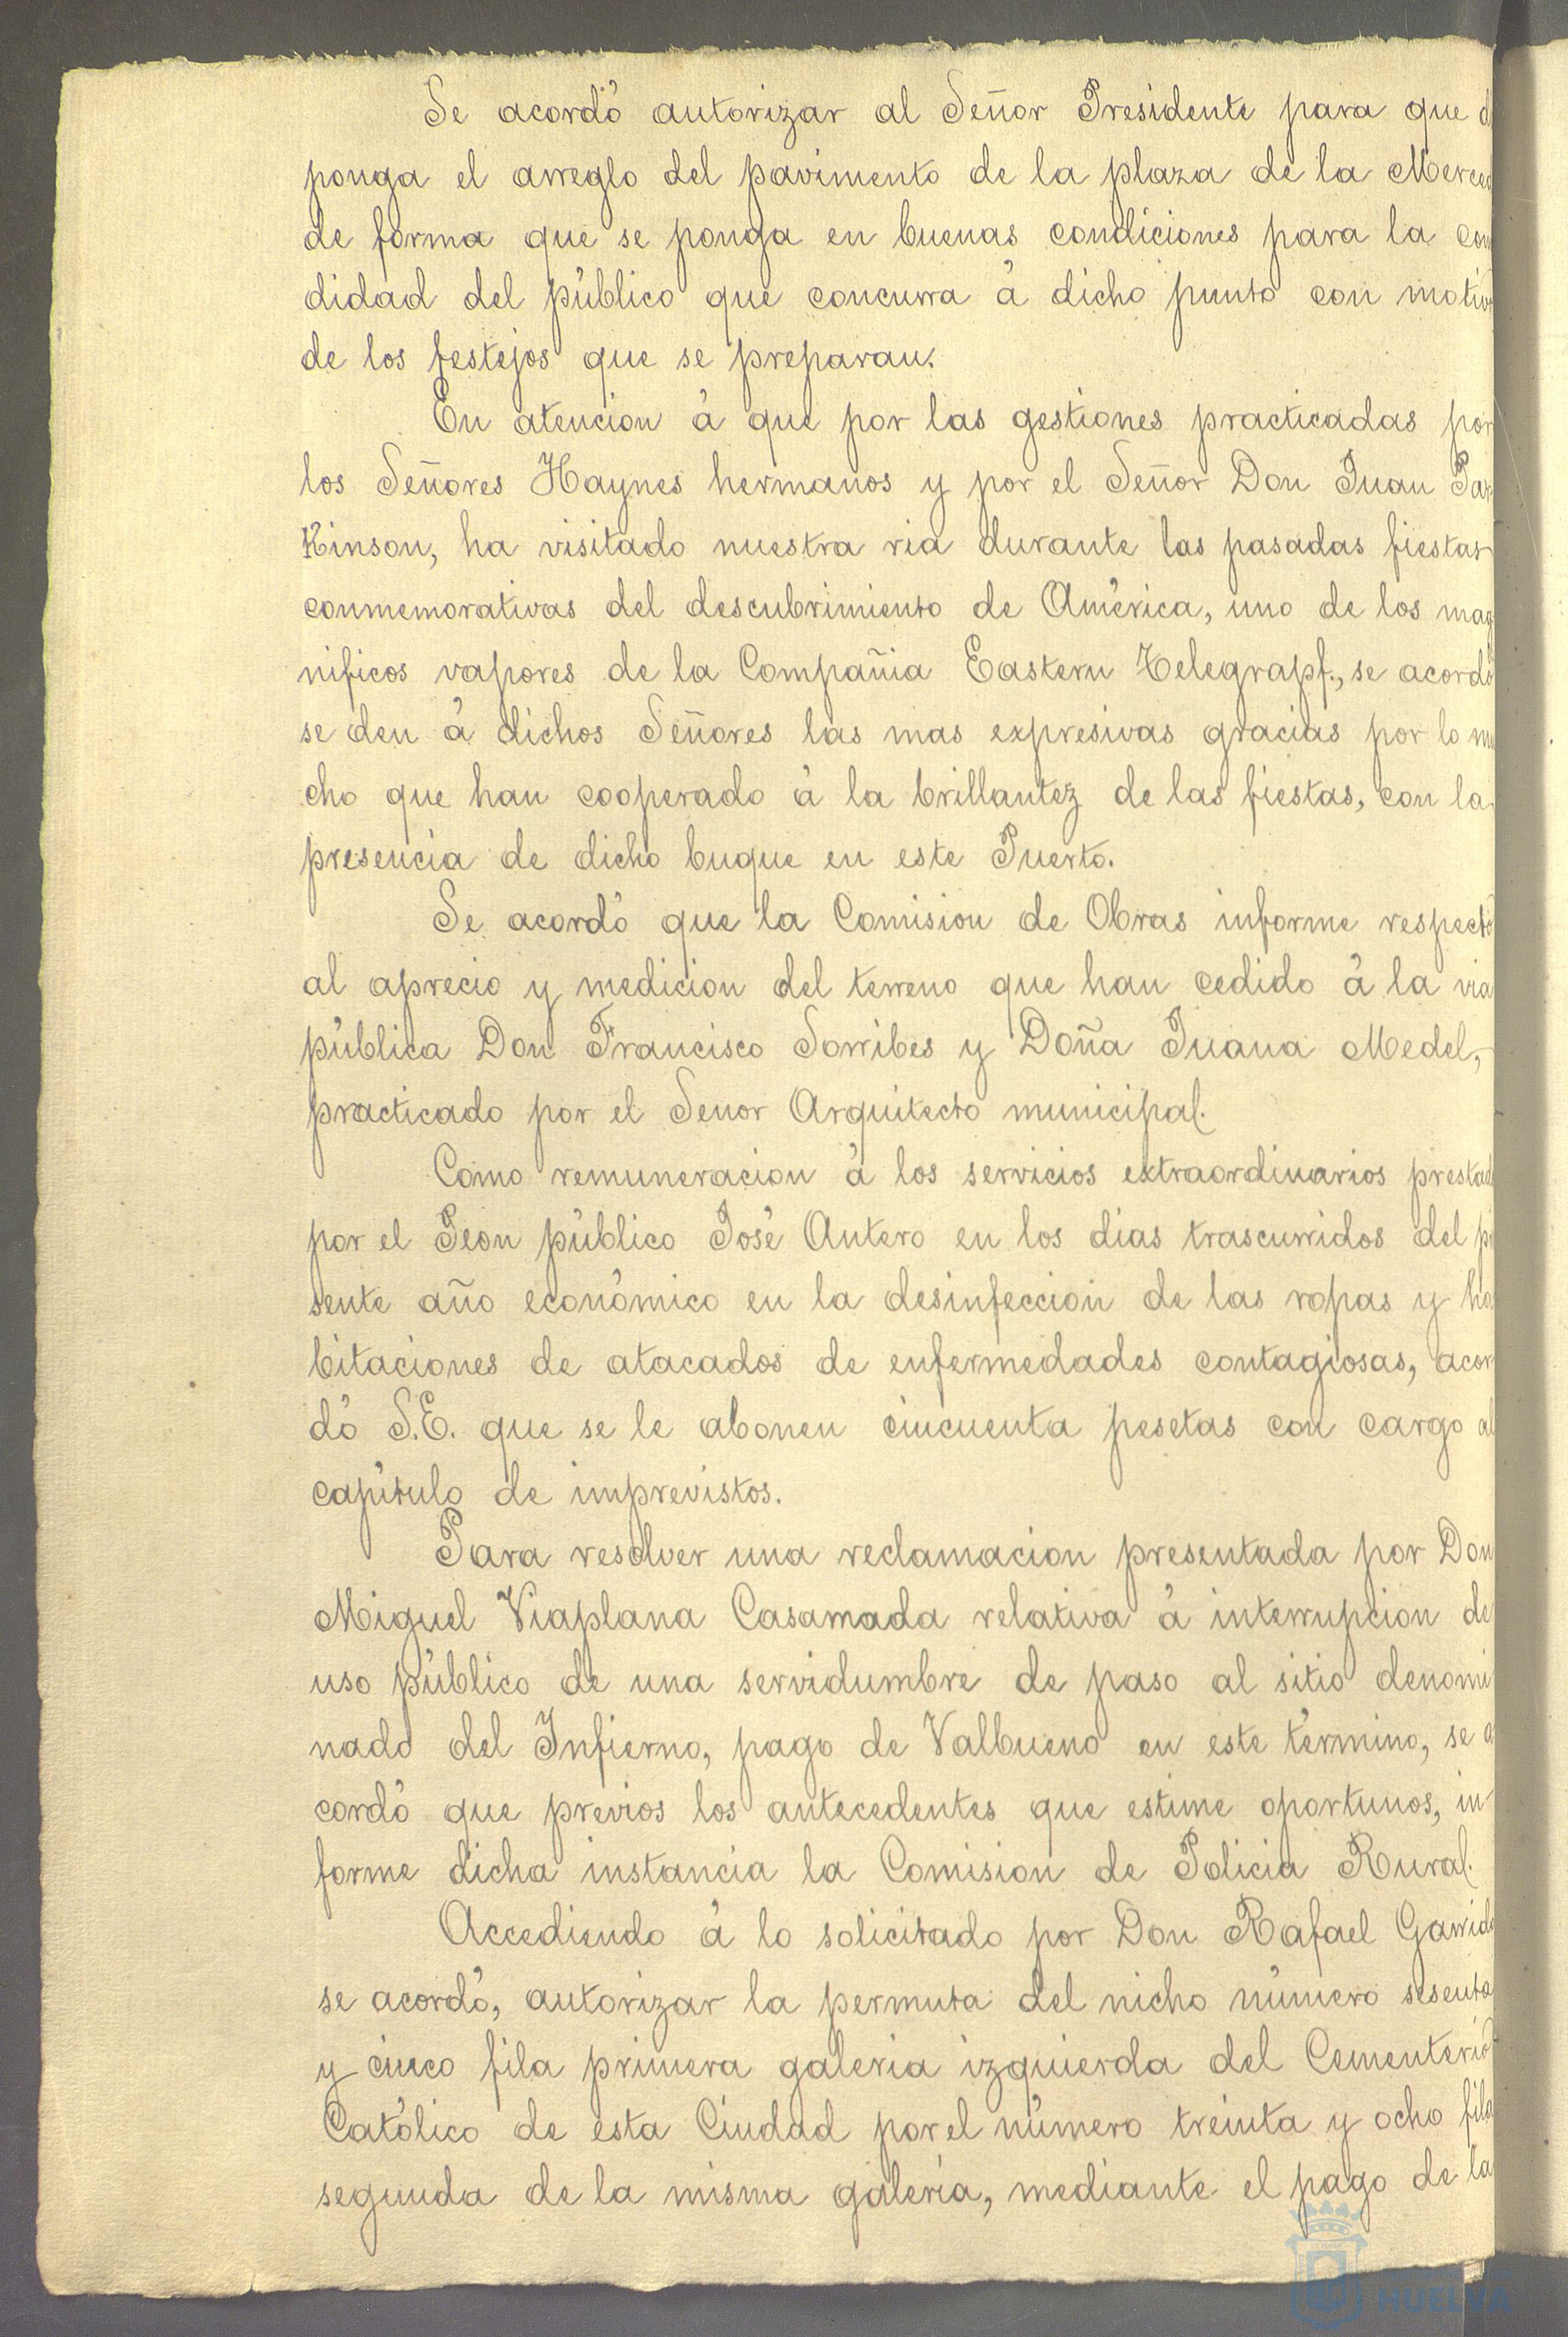 Se acordó autorizar al Señor Presidente para que d
ponga el arreglo del pavimento de la plaza de la Merced
de forma que se ponga en buenas condiciones para la com
didad del público que concurra á dicho punto con motivo
de los festejos que se preparan.
En atencion á que por las gestiones practicadas por
los Señores Haynes hermanos y por el Señor Don Juan Par
Kinson, ha visitado nuestra ria durante las pasadas fiestas
conmemorativas del descubrimiento de América, uno de los mag
nificos vapores de la Compañia Eastern Telegrapf., se acordó
se den á dichos Señores las mas expresivas gracias por lo mu
cho que han cooperado á la brillantez de las fiestas, con la
presencia de dicho buque en este Puerto.
Se acordó que la Comision de Obras informe respecto
al aprecio y medicion del terreno que han cedido á la via
pública Don Francisco Sorribes y Doña Juana Medel,
practicado por el Senor Arquitecto municipal.
Como remuneracion á los servicios extraordinarios prestad
por el Peon público José Antero en los dias trascurridos del pr
sente año económico en la desinfeccion de las ropas y ha
bitaciones de atacados de enfermedades contagiosas, acor
dó S.E. que se le abonen cincuenta pesetas con cargo al
capítulo de imprevistos.
Para resolver una reclamacion presentada por Don
Miguel Viaplana Casamada relativa á interrupcion de
uso público de una servidumbre de paso al sitio denomi
nado del Infierno, pago de Valbueno en este término, se a
cordó que previos los antecedentes que estime oportunos, in-
forme dicha instancia la Comision de Policia Rural.
Accediendo á lo solicitado por Don Rafael Garrido
se acordó, autorizar la permuta del nicho número sesenta
y cinco fila primera galeria izquierda del Cementerio
Católico de esta Ciudad por el número treinta y ocho fila
segunda de la misma galería, mediante el pago de la
HUELVA